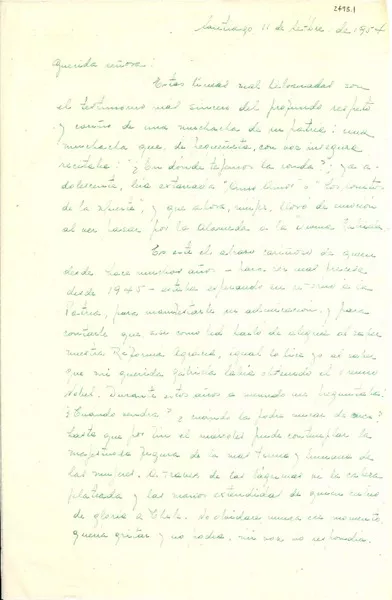 2495.1
Santiago 11 de octbre. de 1954
Querida señora:
Estas líneas mal delineadas son
el testimonio más sincero del profundo respeto
y cariño de una muchacha de su patria; una
muchacha que, de pequeñita, con voz insegura
recitaba: "¿En dónde tejemos la ronda?", ya a-
dolescente, leía extasiada "Los sonetos
de la muerte", y que ahora, mujer, lloró de emoción
al ver pasar por la Alameda a la
Es este el abrazo cariñoso de quien
desde hace muchos años - para ser más precisa
desde 1945 - estaba esperando su retorno a la
Patria, para manifestarle su admiración, y para
contarle que así como Ud. habló de alegría al saber
nuestra Reforma Agraria, igual lo hice yo al saber
que mi querida Gabriela había obtenido el Premio
Nobel. Durante estos años a menudo me preguntaba:
¿Cuándo vendrá? ¿Cuándo la podré mirar de cerca?
Hasta que por fin el miércoles pude contemplar la
majestuosa figura de la más tierna y humana de
las mujeres. A través de las lágrimas vi la cabeza
plateada y las manos extendidas de quien cubrió
de gloria a Chile. No olvidaré nunca ese momento,
quería gritar y no podía, mi voz no respondía.